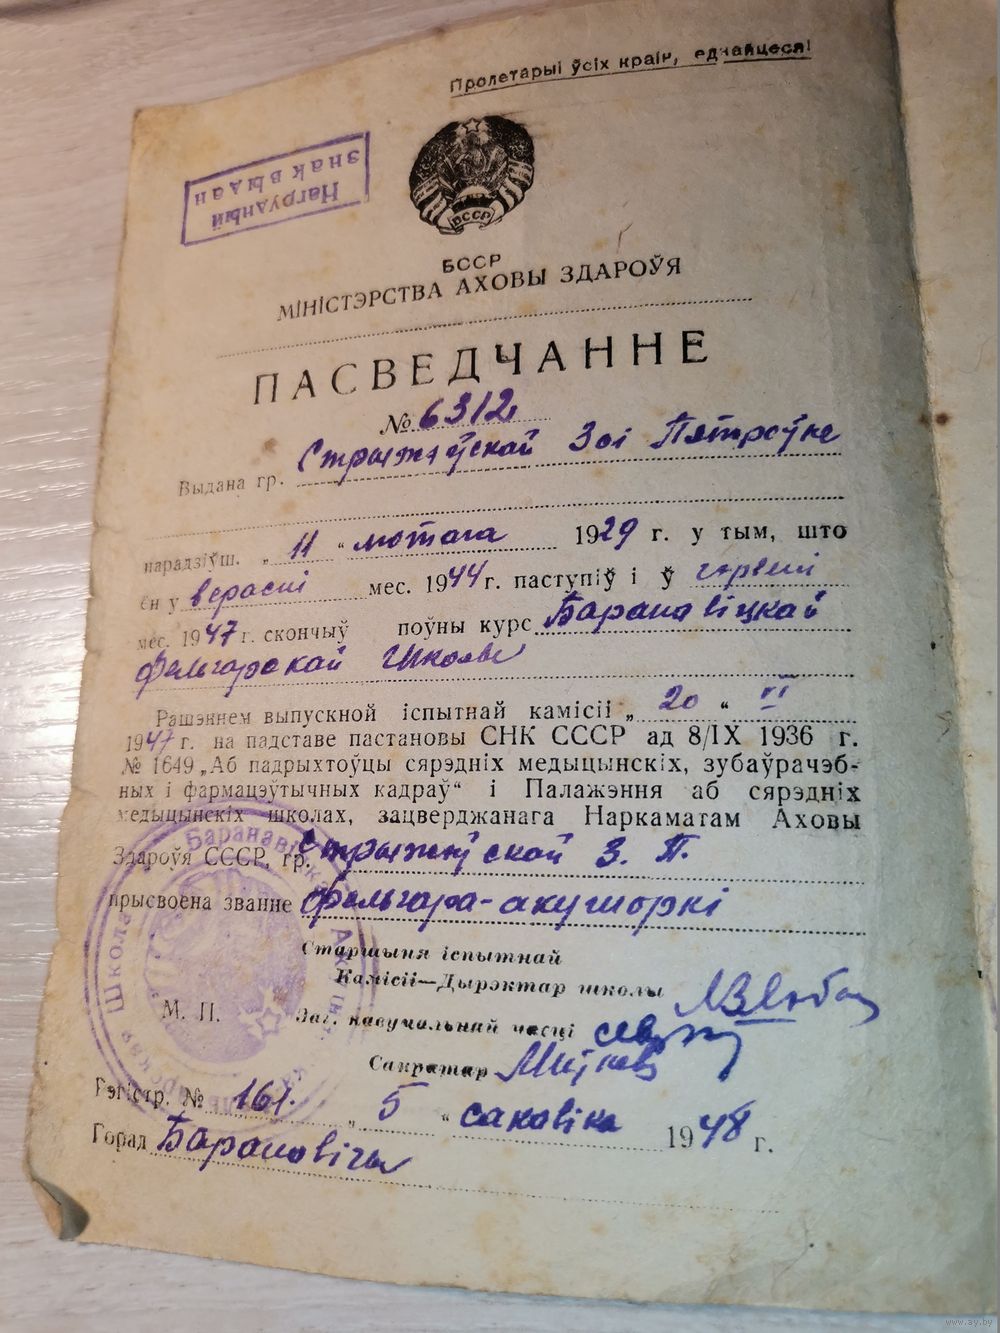 Пролетарыі ўсіх краін, еднайцеся!
Нагрудный
знак выдан
БССР
БССР
МІНІСТЭРСТВА АХОВЫ ЗДАРОЎЯ
ПАСВЕДЧАННЕ
№ 6312
Выдана гр. Стрыжэўскай Зоі Пятроўне
нарадзіўш. „11“ лютага 1929 г. у тым, што
ён у верасні мес. 1944 г. паступіў і ў чэрвені
мес. 1947 г. скончыў поўны курс Баранавіцкай
фельчарскай школы
Рашэннем выпускной іспытнай камісіі „20“ VI
1947 г. на падставе пастановы СНК СССР ад 8/IX 1936 г.
№ 1649 „Аб падрыхтоўцы сярэдніх медыцынскіх, зубаўрачэб-
ных і фармацэўтычных кадраў“ і Палажэння аб сярэдніх
медыцынскіх школах, зацверджанага Наркаматам Аховы
Здароўя СССР, гр. Стрыжэўскай З. П.
прысвоена званне фельчара-акушоркі
Старшыня іспытнай
Камісіі—Дырэктар школы
М. П. Заг. навучальнай часці
Сакратар
Рэгістр. № 161. „5“ сакавіка 1948 г.
Горад Баранавічы
www.ay.by